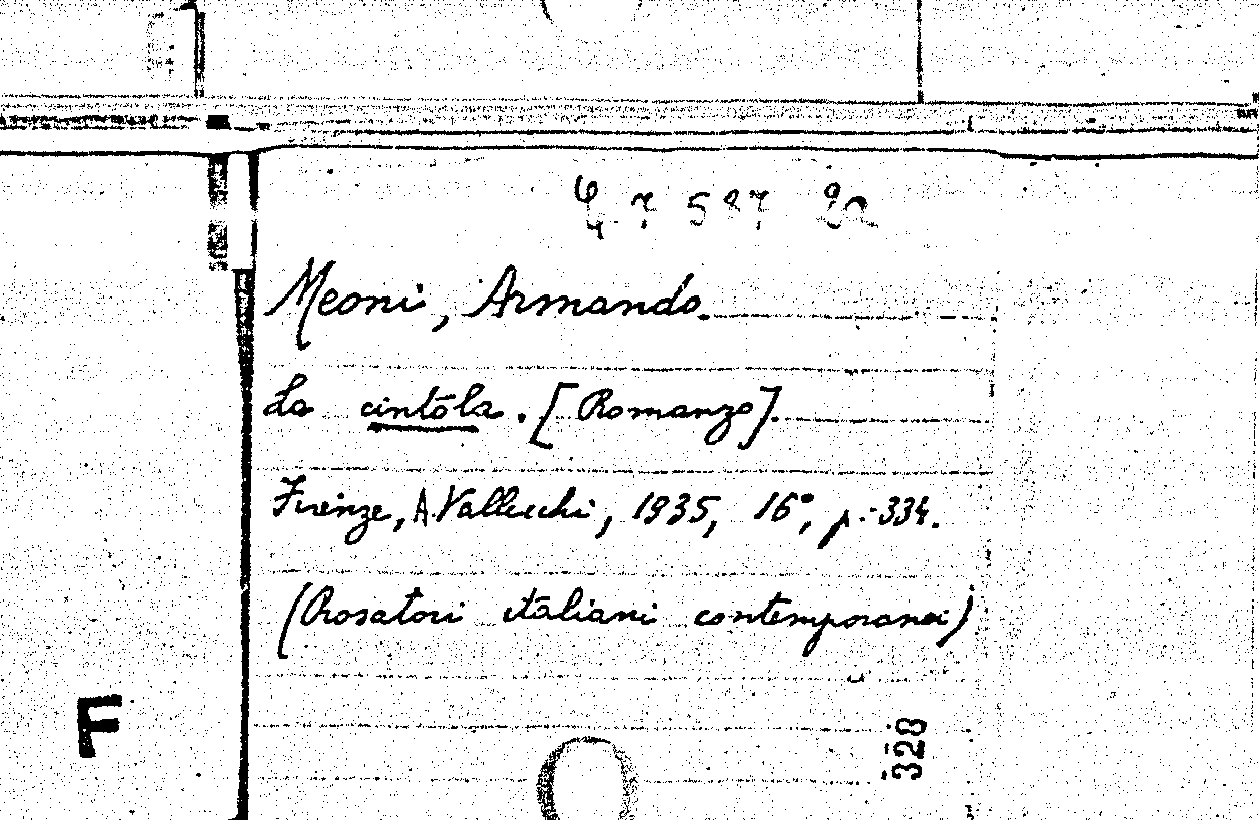 4.7.527 22
Meoni, Armando.
La cintola. [Romanzo].
Firenze, A. Vallecchi, 1935, 16°, p. 334.
(Prosatori italiani contemporanei)
F
328